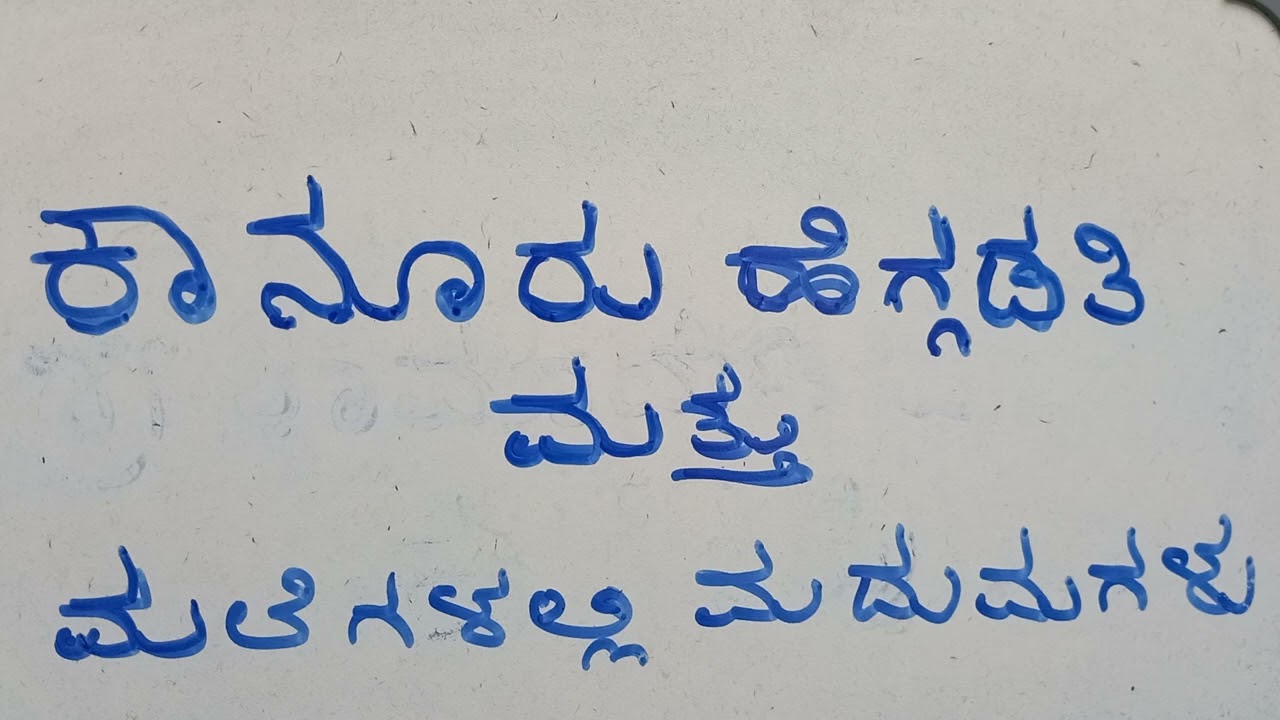 ಕಾನೂರು ಹೆಗ್ಗಡತಿ
ಮತ್ತು
ಮಲೆಗಳಲ್ಲಿ ಮದುಮಗಳು